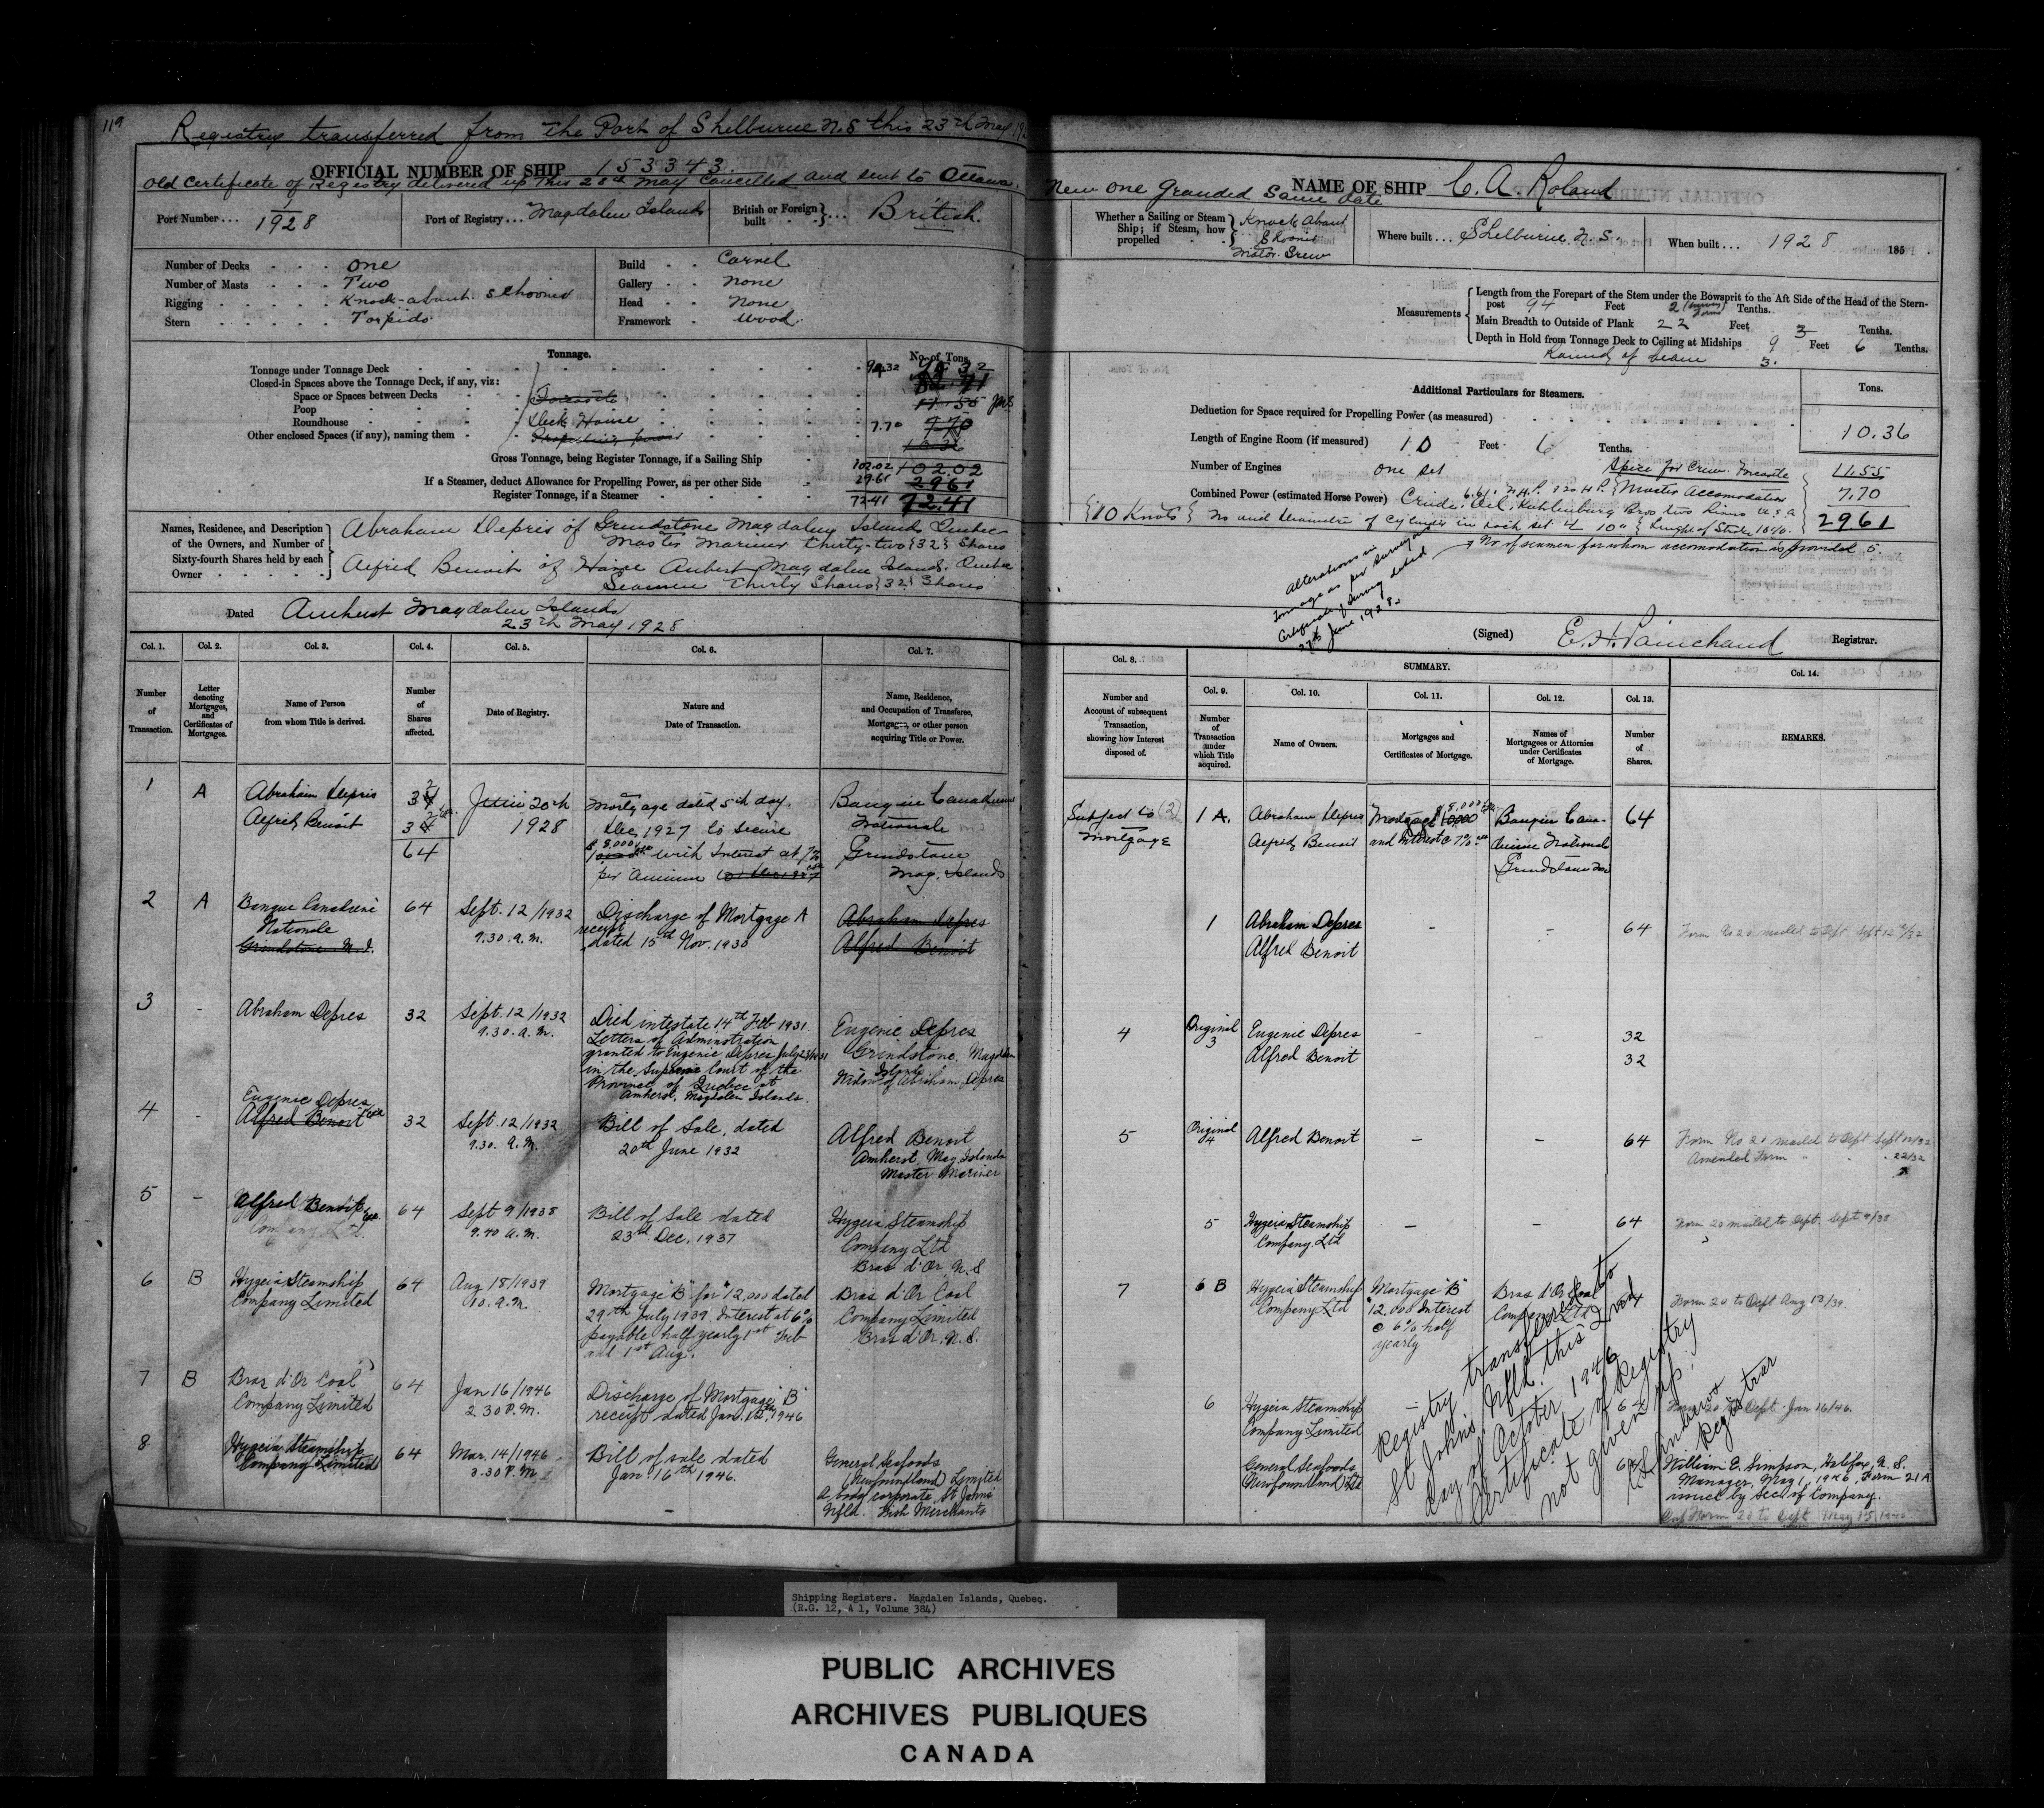 119
Registry transferred from the Port of Shelburne N.S this 23rd May 19
OFFICIAL NUMBER OF SHIP 153343.
Old Certificate of Registry delivered up this 20th May Cancelled and sent to Ottawa.
Port Number ... 1/1928
Port of Registry ... Magdalen Islands
British or Foreign built ... British.
Number of Decks one
Number of Masts Two
Rigging Knock-about Schooner
Stern Torpido
Build Carvel
Gallery none
Head None
Framework Wood
Tonnage.
No. of Tons.
Tonnage under Tonnage Deck 94.32
Closed-in Spaces above the Tonnage Deck, if any, viz:
Space or Spaces between Decks Forecastle 11.55
Poop
Roundhouse Deck House 7.70 7.70
Other enclosed Spaces (if any), naming them Propelling power
Gross Tonnage, being Register Tonnage, if a Sailing Ship 102.02 102.02
If a Steamer, deduct Allowance for Propelling Power, as per other Side 29.61 2961
Register Tonnage, if a Steamer 72.41 72.41
Names, Residence, and Description of the Owners, and Number of Sixty-fourth Shares held by each Owner
Abraham Depris of Grindstone Magdalen Islands Quebec
Master Mariner Thirty-two {32} Shares
Alfred Benoit of Havre Aubert Magdalen Islands. Quebec
Seamen Thirty Shares {32} Shares
Dated Amherst Magdalen Islands
23rd May 1928
Col. 1. Col. 2. Col. 3. Col. 4. Col. 5. Col. 6. Col. 7.
Number of Transaction.
Letter denoting Mortgages, and Certificates of Mortgages.
Name of Person from whom Title is derived.
Number of Shares affected.
Date of Registry.
Nature and Date of Transaction.
Name, Residence, and Occupation of Transferee, Mortgagee, or other person acquiring Title or Power.
1 A Abraham Depris
Alfred Benoit
32
32
64
June 20th
1928
Mortgage dated 5th day.
Dec, 1927 to secure
$8,000 with Interest at 7%
per Annum
Banque Canadienne
Nationale
Grindstone
Mag. Islands
2 A Banque Canadiene
Nationale
Grindstone M. I.
64
Sept. 12/1932
9.30. a.m.
Discharge of Mortgage A
receipt
dated 15th Nov. 1930
Abraham Depres
Alfred Benoit
3 - Abraham Depres
32
Sept. 12/1932
9.30. a.m.
Died intestate 14th Feb 1931.
Letters of Adminstration
granted to Eugenie Depres July 23/1931
in the Superior Court of the
Province of Quebec at
Amherst, Magdalen Islands.
Eugenie Depres
Grindstone, Magdalen
Islands
Widow of Abraham Depres
4 - Eugenie Depres
Alfred Benoit
32
Sept. 12/1932
9.30. a.m.
Bill of Sale, dated
20th June 1932
Alfred Benoit
Amherst, Mag Islands
Master Mariner
5 - Alfred Benoit
Company Ltd.
64
Sept 9/1938
9.40 a.m.
Bill of Sale dated
23rd Dec. 1937
Hygeia Steamship
Company Ltd
Bras d'Or, N.S
6 B Hygeia Steamship
Company Limited
64
Aug 18/1939
10. a.m.
Mortgage "B" for $12,000 dated
29th July 1939. Interest at 6%
payable half yearly 1st Feb
and 1st Aug.
Bras d'Or Coal
Company Limited
Bras d'Or, N.S.
7 B Bras d'Or Coal
Company Limited
64
Jan 16/1946
2.30 P.M.
Discharge of Mortgage "B"
receipt dated Jan. 12th, 1946
8 Hygeia Steamship
Company Limited
64
Mar. 14/1946
3.30 P.M.
Bill of sale dated
Jan 16th 1946.
General Seafoods
(Newfoundland) Limited
a body corporate, St Johns
Nfld. Fish Merchants
New one Granded Same date
NAME OF SHIP C. A. Roland
Whether a Sailing or Steam Ship; if Steam, how propelled
Knock About
Shooner
Motor Srew
Where built ... Shelburne N.S.
When built ... 1928 185
Measurements
Length from the Forepart of the Stem under the Bowsprit to the Aft Side of the Head of the Stern-
post 94 Feet 2 Tenths.
Main Breadth to Outside of Plank 22 Feet 3 Tenths.
Depth in Hold from Tonnage Deck to Ceiling at Midships 9 Feet 6 Tenths.
Round of beam 3.
Additional Particulars for Steamers.
Tons.
Deduction for Space required for Propelling Power (as measured) 10.36
Length of Engine Room (if measured) 10 Feet 6 Tenths.
Number of Engines one set
Spice for Crew. Forcastle 11.55
Combined Power (estimated Horse Power)
Master Accomodation 7.70
2961
Crude Oil
{10 Knots} No and Diameter of Cylinder in each set 4 10" Lenght of Stroke
No of seamen for whom accomodation is provided 5.
Alterations in
tonnage as per survey
Certificate of Survey dated
27th June, 1928.
(Signed) E. H. Painchaud Registrar.
Col. 8. SUMMARY. Col. 14.
Col. 9. Col. 10. Col. 11. Col. 12. Col. 13.
Number and Account of subsequent Transaction, showing how Interest disposed of.
Number of Transaction under which Title acquired.
Name of Owners.
Mortgages and Certificates of Mortgage.
Names of Mortgagees or Attornies under Certificates of Mortgage.
Number of Shares.
REMARKS.
Subject to (2)
Mortgage
1 A. Abraham Depris
Alfred Benoit
Mortgage $8,000
and Interest @ 7%
Banque Cana-
dienne Nationale
Grindstone
64
1 Abraham Depres
Alfred Benoit
- - 64
Form No 20 mailed to Dept Sept 12/32
4 Original 3
Eugenie Depres
Alfred Benoit
- - 32
32
5 Original 4
Alfred Benoit - - 64
Form No 20 mailed to Dept Sept 12/32
Amended Form " " 22/32
5 Hygeia Steamship
Company. Ltd
- - 64
Form 20 mailed to Dept. Sept 9/38
7 6 B Hygeia Steamship
Company Ltd
Mortgage "B"
$12,000 Interest
@ 6% half
yearly
Bras d'Or Coal
Company Ltd
64
Form 20 to Dept Aug 18/39.
6 Hygeia Steamship
Company Limited
- 64
Form 20 to Dept. Jan 16/46.
General Seafoods
(Newfoundland) Ltd
64
William E. Simpson, Halifax, N.S.
Manager, May 1, 1946, Form 21A
issued by Sec. of Company.
Form 20 to Dept May 15/1946
Registry transferred to
St John's Nfld. this 2nd
day of October 1946
Certificate of Registry
not given up.
Registrar
Shipping Registers. Magdalen Islands, Quebec.
(R.G. 12, A 1, Volume 384)
PUBLIC ARCHIVES
ARCHIVES PUBLIQUES
CANADA